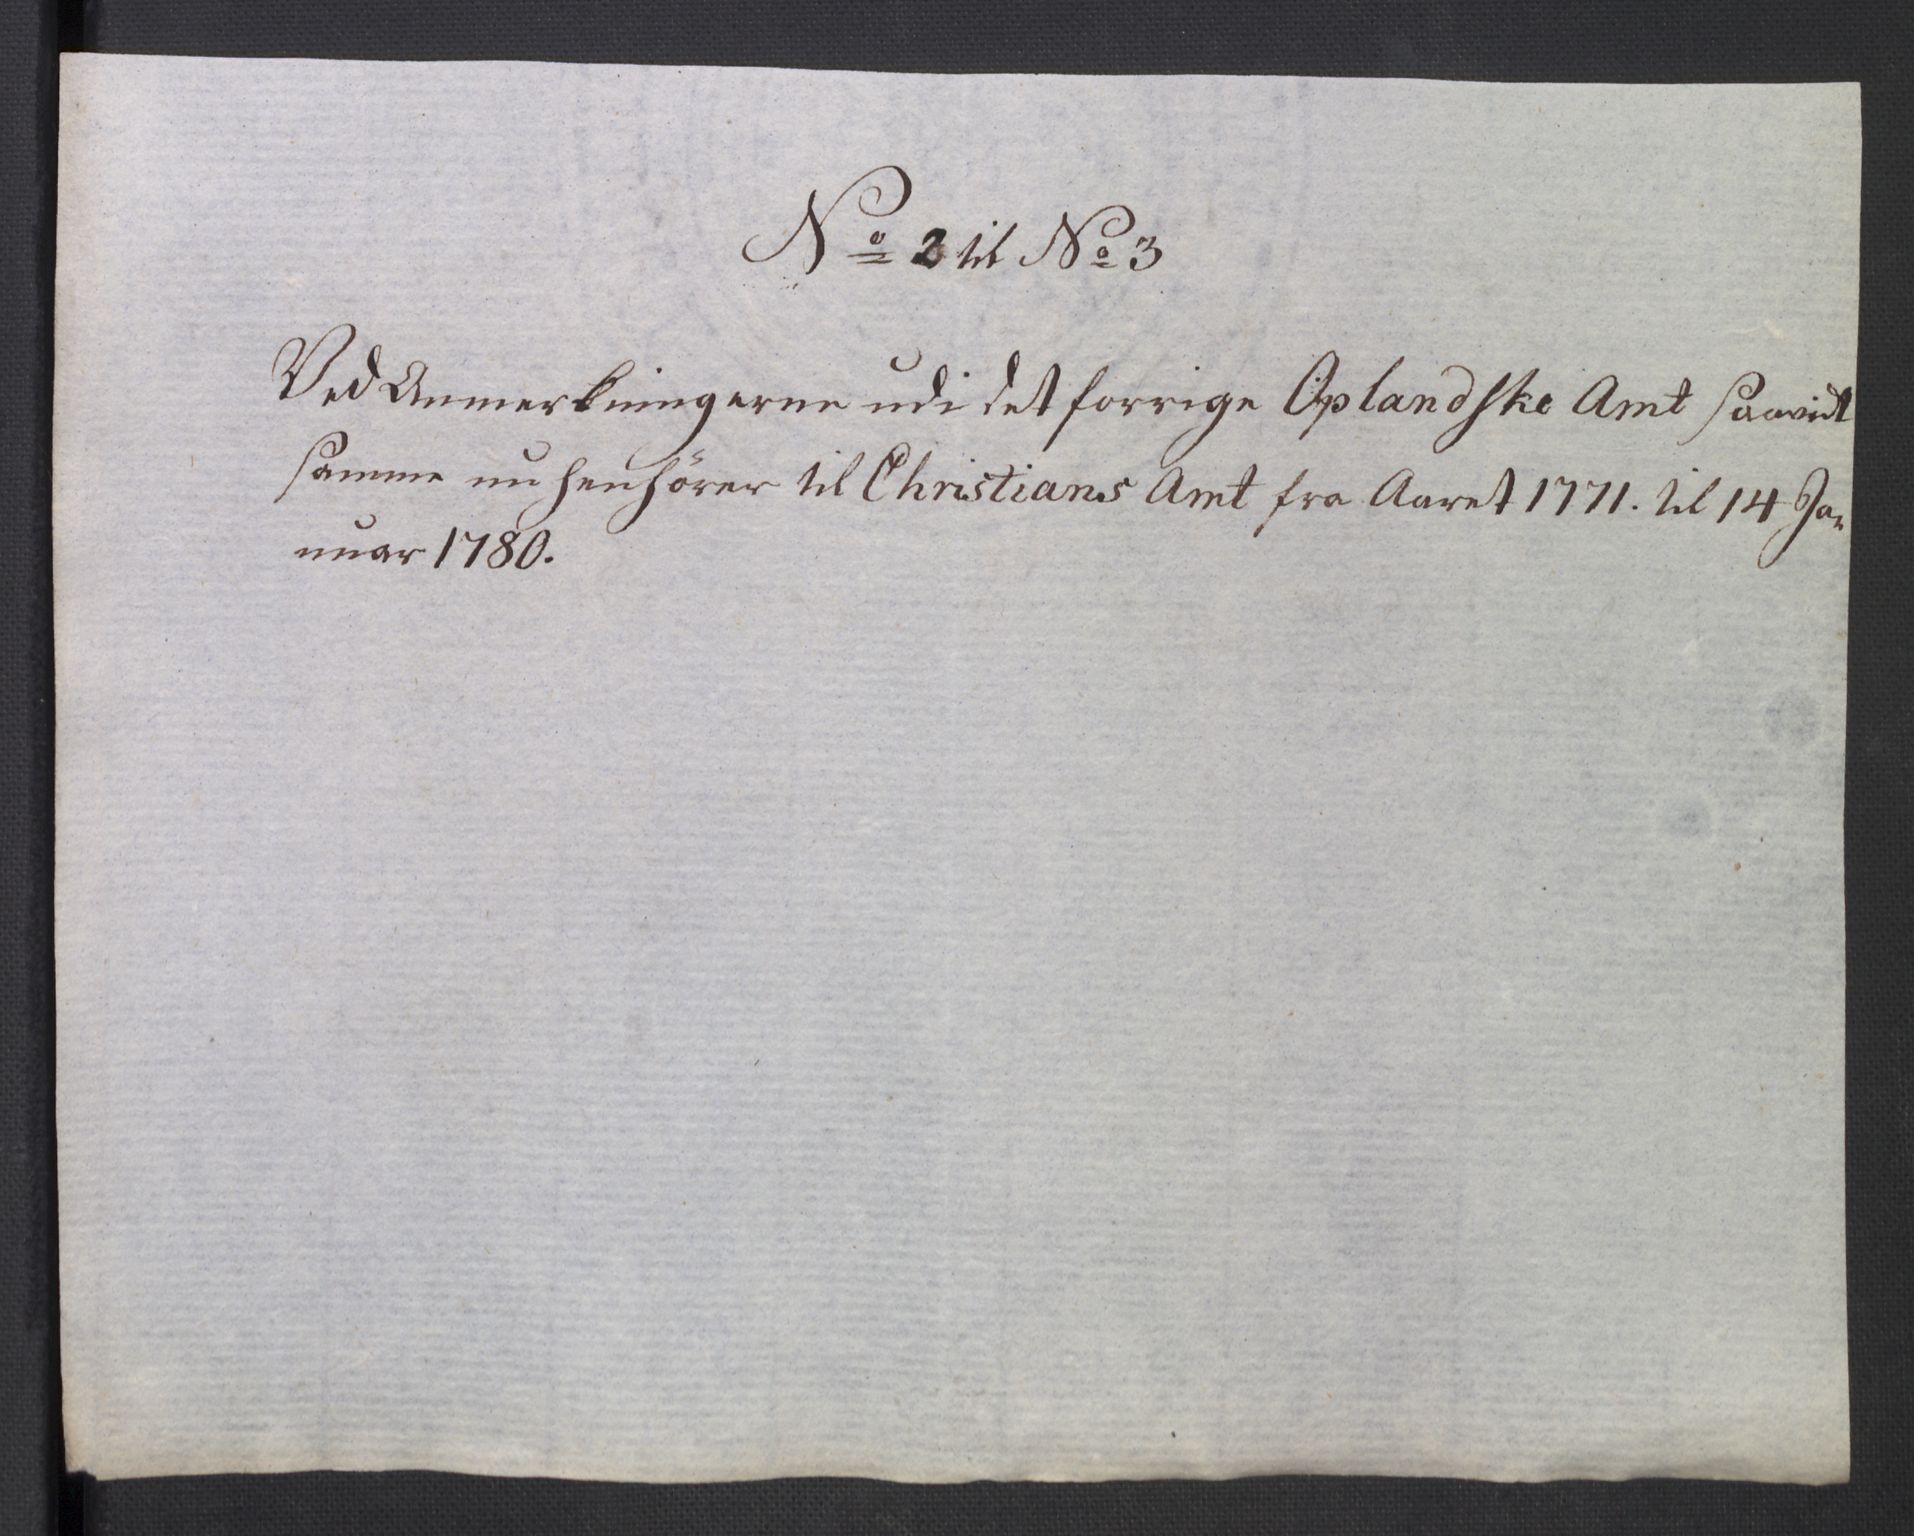 No 2 til No 3
Ved Anmerkningerne udi det forrige Oplandske Amt saavidt
samme nu henhörer til Christians Amt fra Aaret 1771. til 14 Ja-
nuar 1780.